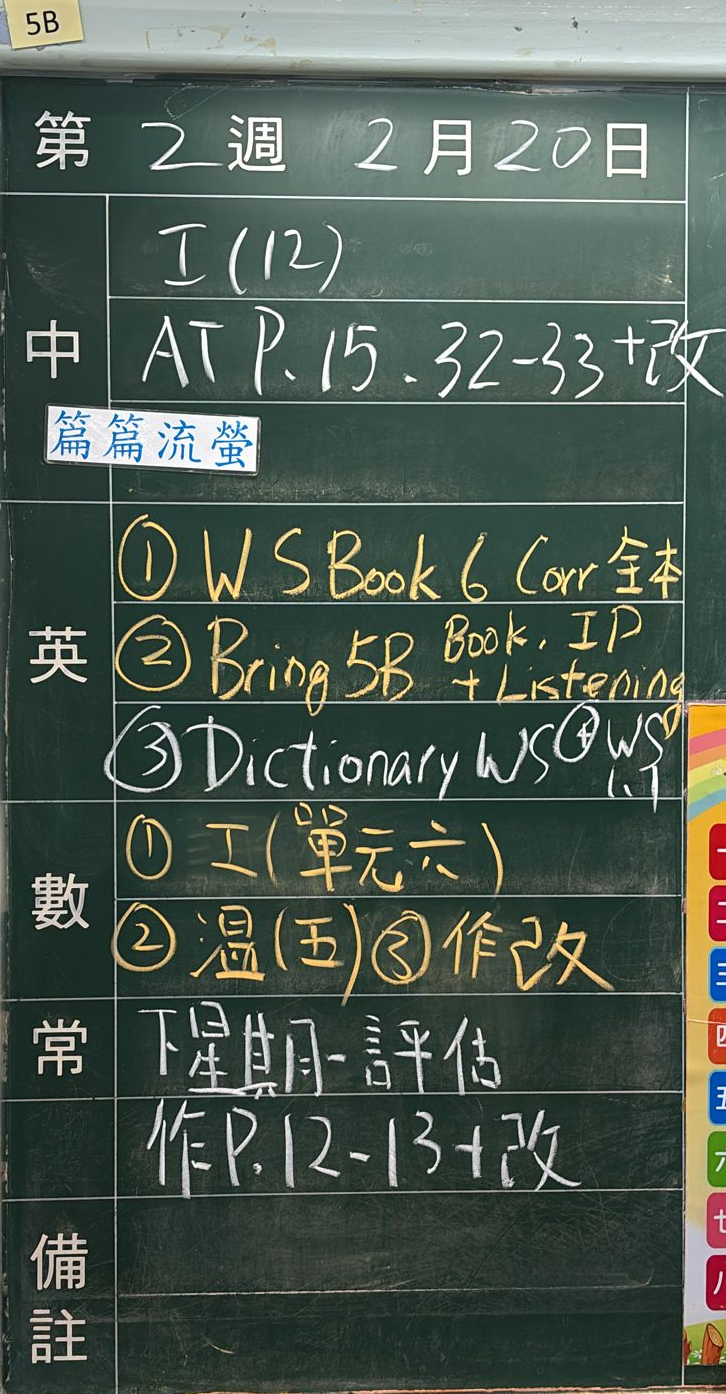 5B
第 2 週 2 月 20 日
中
工(12)
AT P. 15. 32-33+改
篇篇流螢
英
① WS Book 6 Corr 全本
② Bring 5B Book, IP + Listening
③ Dictionary WS ④ WS 1.1
數
① 工(單元六)
② 溫(五) ③ 作改
常
下星期一評估
作P. 12-13+改
備註
一
二
三
四
五
六
七
八